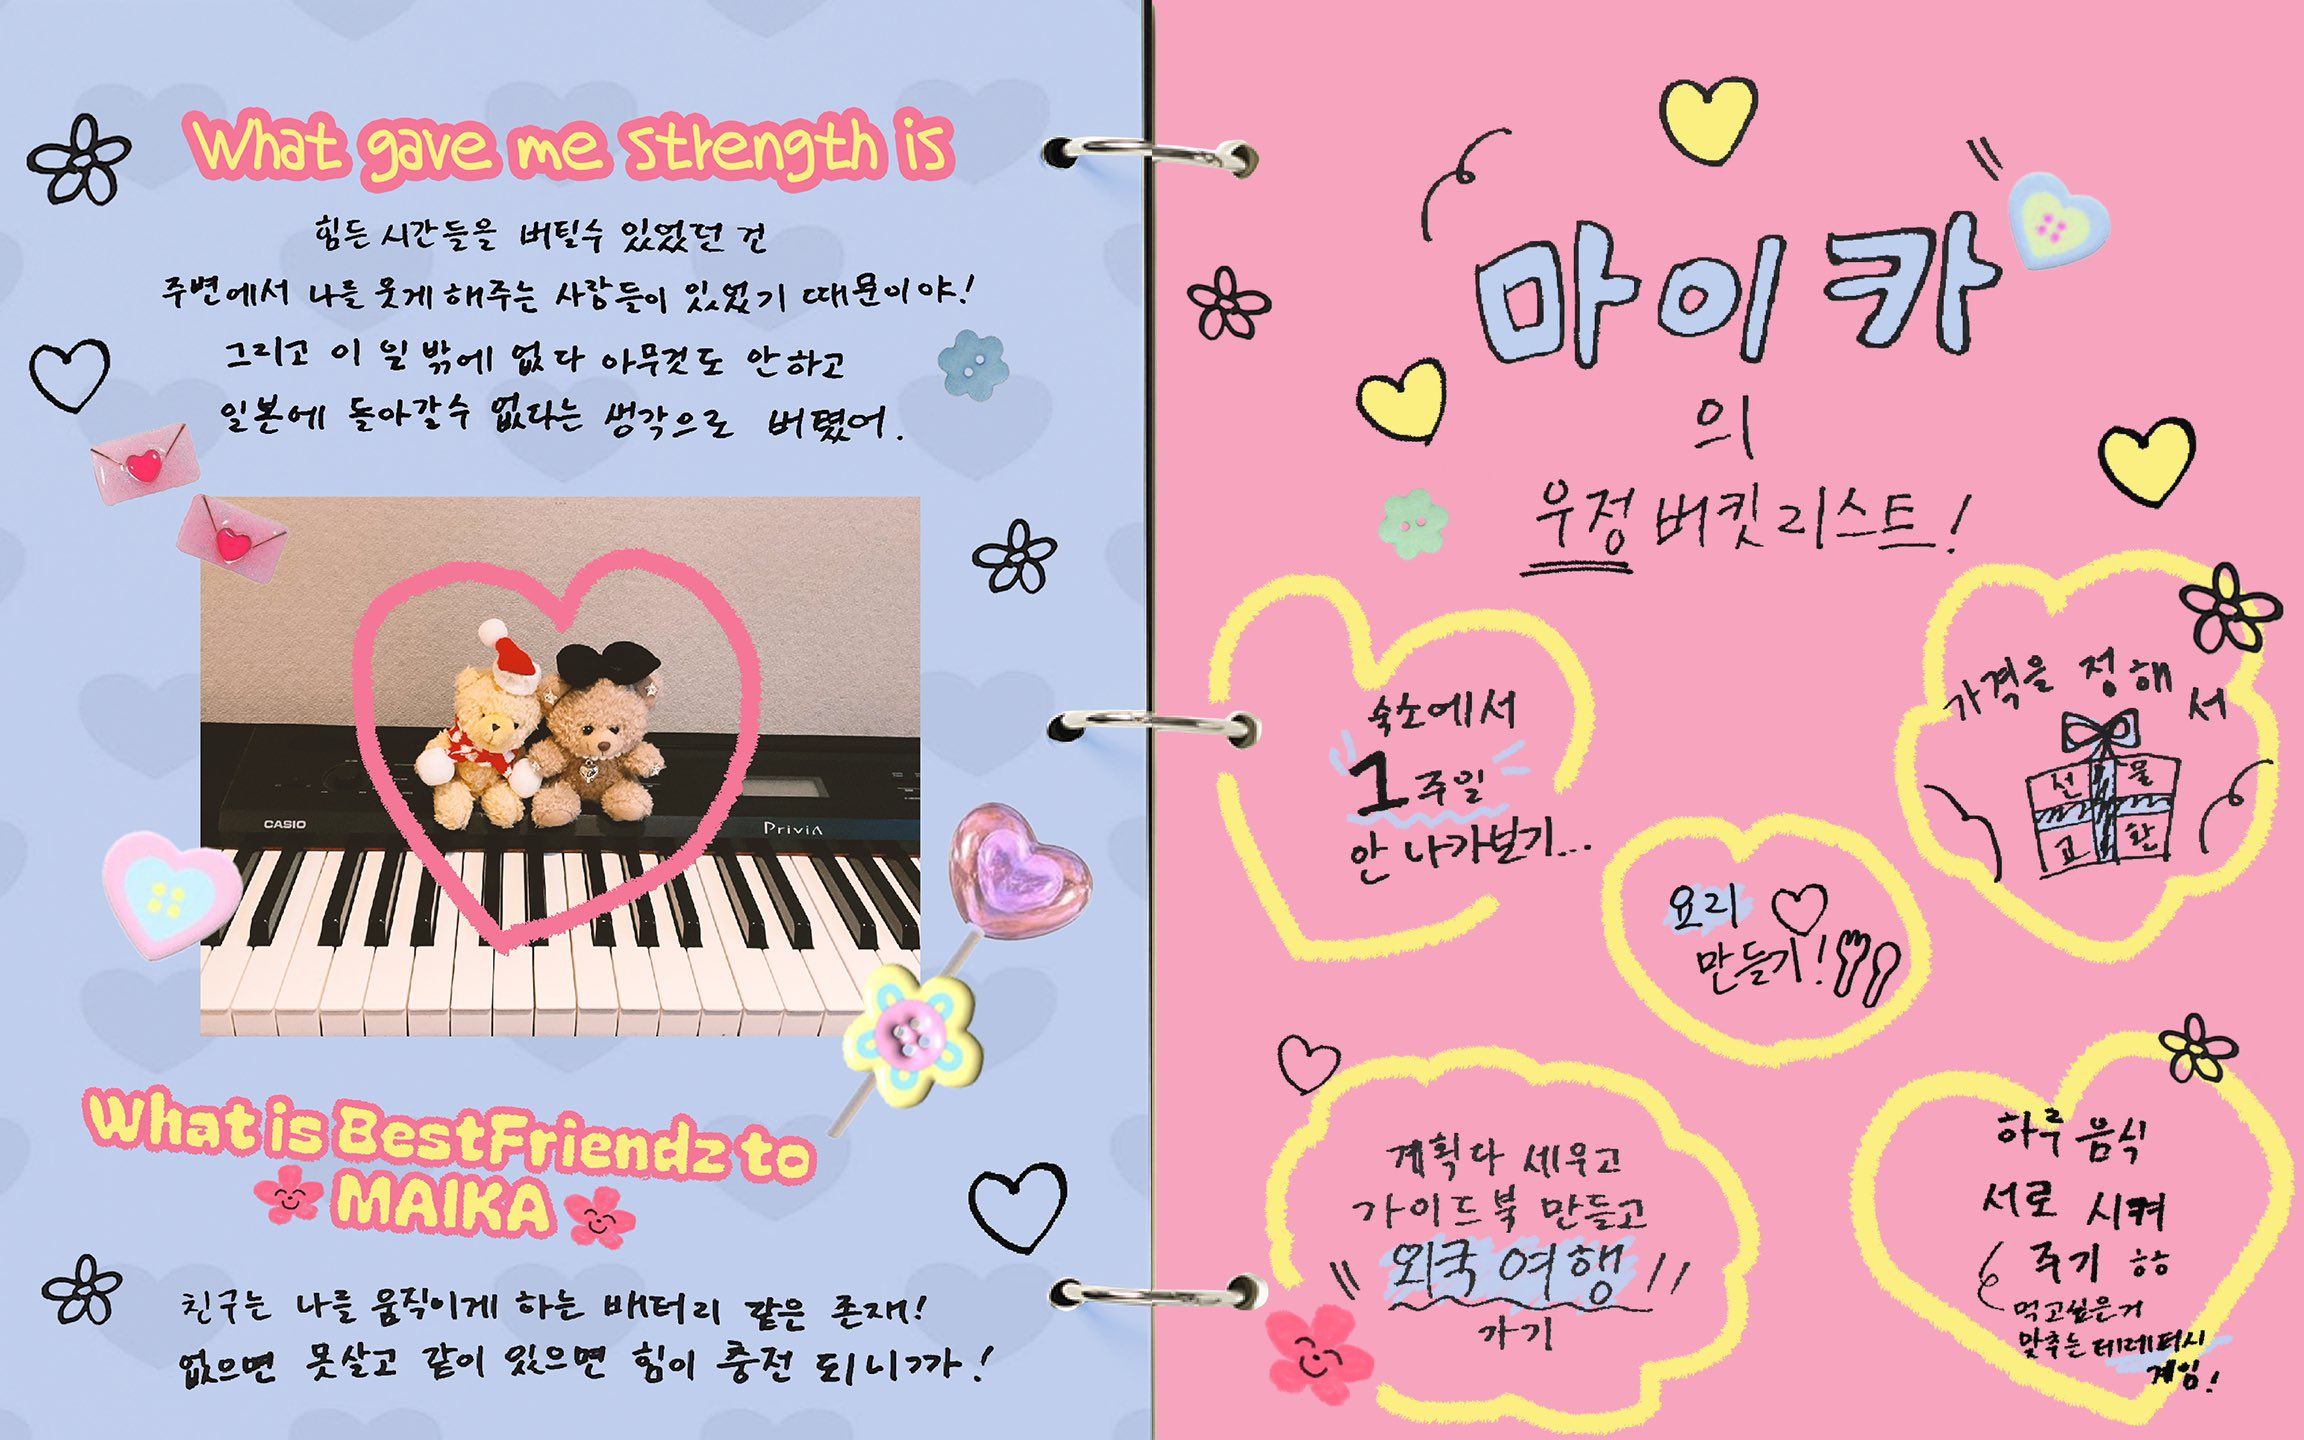 What gave me strength is
힘든 시간들을 버틸수 있었던 건
주변에서 나를 웃게 해주는 사람들이 있었기 때문이야!
그리고 이 일 밖에 없다 아무것도 안하고
일본에 돌아갈수 없다는 생각으로 버텼어.
CASIO
Privia
What is BestFriendz to
MAIKA
친구는 나를 움직이게 하는 배터리 같은 존재!
없으면 못살고 같이 있으면 힘이 충전 되니까!
마이카
의
우정 버킷 리스트!
숙소에서
1주일
안 나가보기...
가격을 정해서
선물
교환
요리
만들기!
계획다 세우고
가이드북 만들고
외국 여행
가기
하루 음식
서로 시켜
주기 ㅎㅎ
먹고싶은거
맞추는 테레터시
게임!